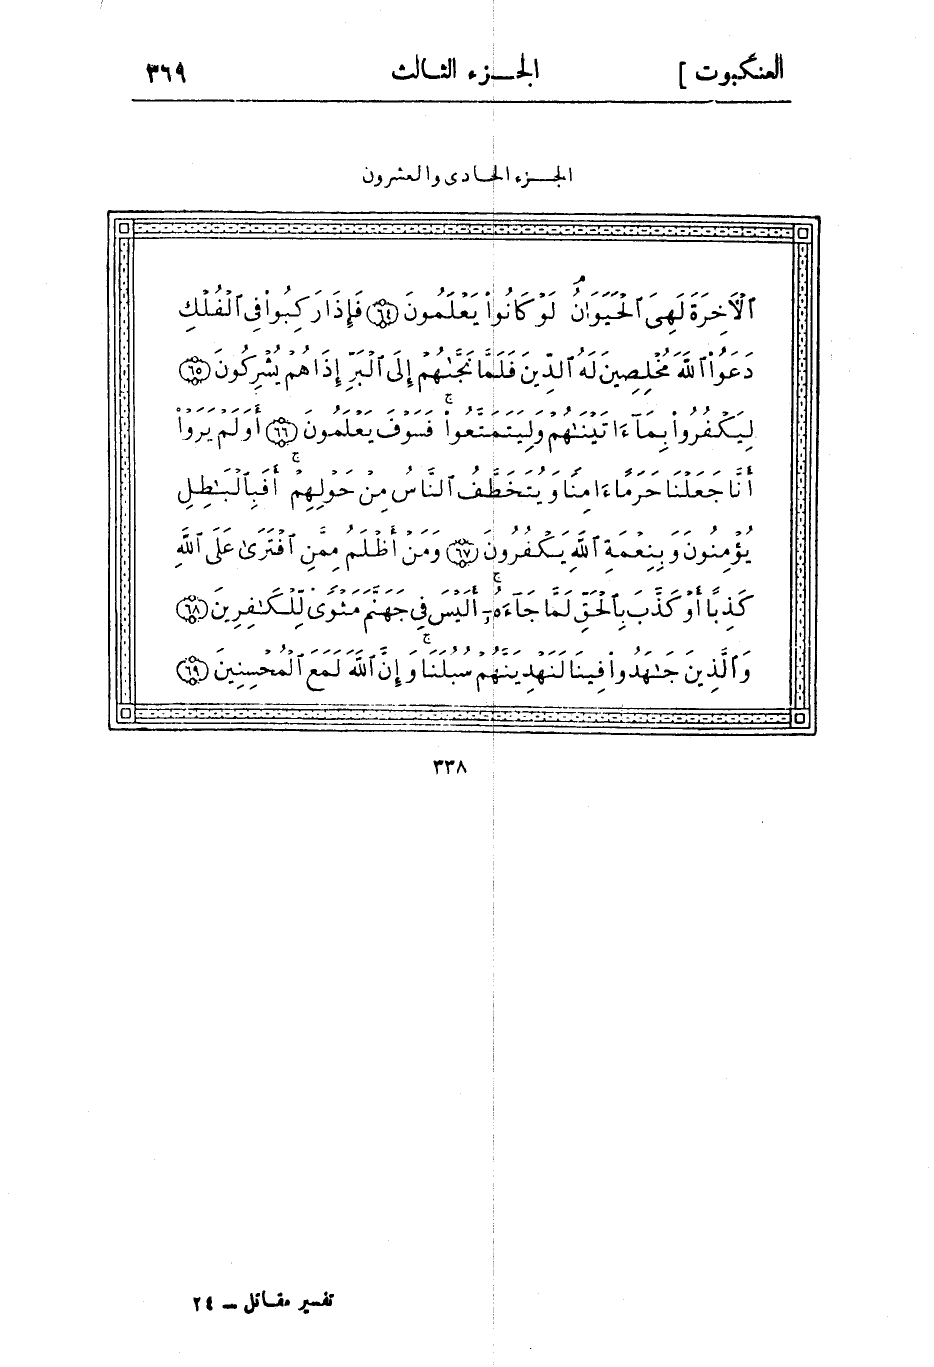 العنكبوت ] الجزء الثالث ٣٦٩
الجزء الحادى والعشرون
ٱلْأٓخِرَةَ لَهِىَ ٱلْحَيَوَانُ ۘ لَوْ كَانُواْ يَعْلَمُونَ ۝٦٤ فَإِذَا رَكِبُواْ فِى ٱلْفُلْكِ
دَعَوُاْ ٱللَّهَ مُخْلِصِينَ لَهُ ٱلدِّينَ فَلَمَّا نَجَّىٰهُمْ إِلَى ٱلْبَرِّ إِذَا هُمْ يُشْرِكُونَ ۝٦٥
لِيَكْفُرُواْ بِمَآ ءَاتَيْنَٰهُمْ وَلِيَتَمَتَّعُواْ ۚ فَسَوْفَ يَعْلَمُونَ ۝٦٦ أَوَلَمْ يَرَوْاْ
أَنَّا جَعَلْنَا حَرَمًا ءَامِنًا وَيُتَخَطَّفُ ٱلنَّاسُ مِنْ حَوْلِهِمْ ۚ أَفَبِٱلْبَٰطِلِ
يُؤْمِنُونَ وَبِنِعْمَةِ ٱللَّهِ يَكْفُرُونَ ۝٦٧ وَمَنْ أَظْلَمُ مِمَّنِ ٱفْتَرَىٰ عَلَى ٱللَّهِ
كَذِبًا أَوْ كَذَّبَ بِٱلْحَقِّ لَمَّا جَآءَهُۥٓ ۚ أَلَيْسَ فِى جَهَنَّمَ مَثْوًى لِّلْكَٰفِرِينَ ۝٦٨
وَٱلَّذِينَ جَٰهَدُواْ فِينَا لَنَهْدِيَنَّهُمْ سُبُلَنَا ۚ وَإِنَّ ٱللَّهَ لَمَعَ ٱلْمُحْسِنِينَ ۝٦٩
٣٣٨
تفسير مقاتل ــ ٢٤